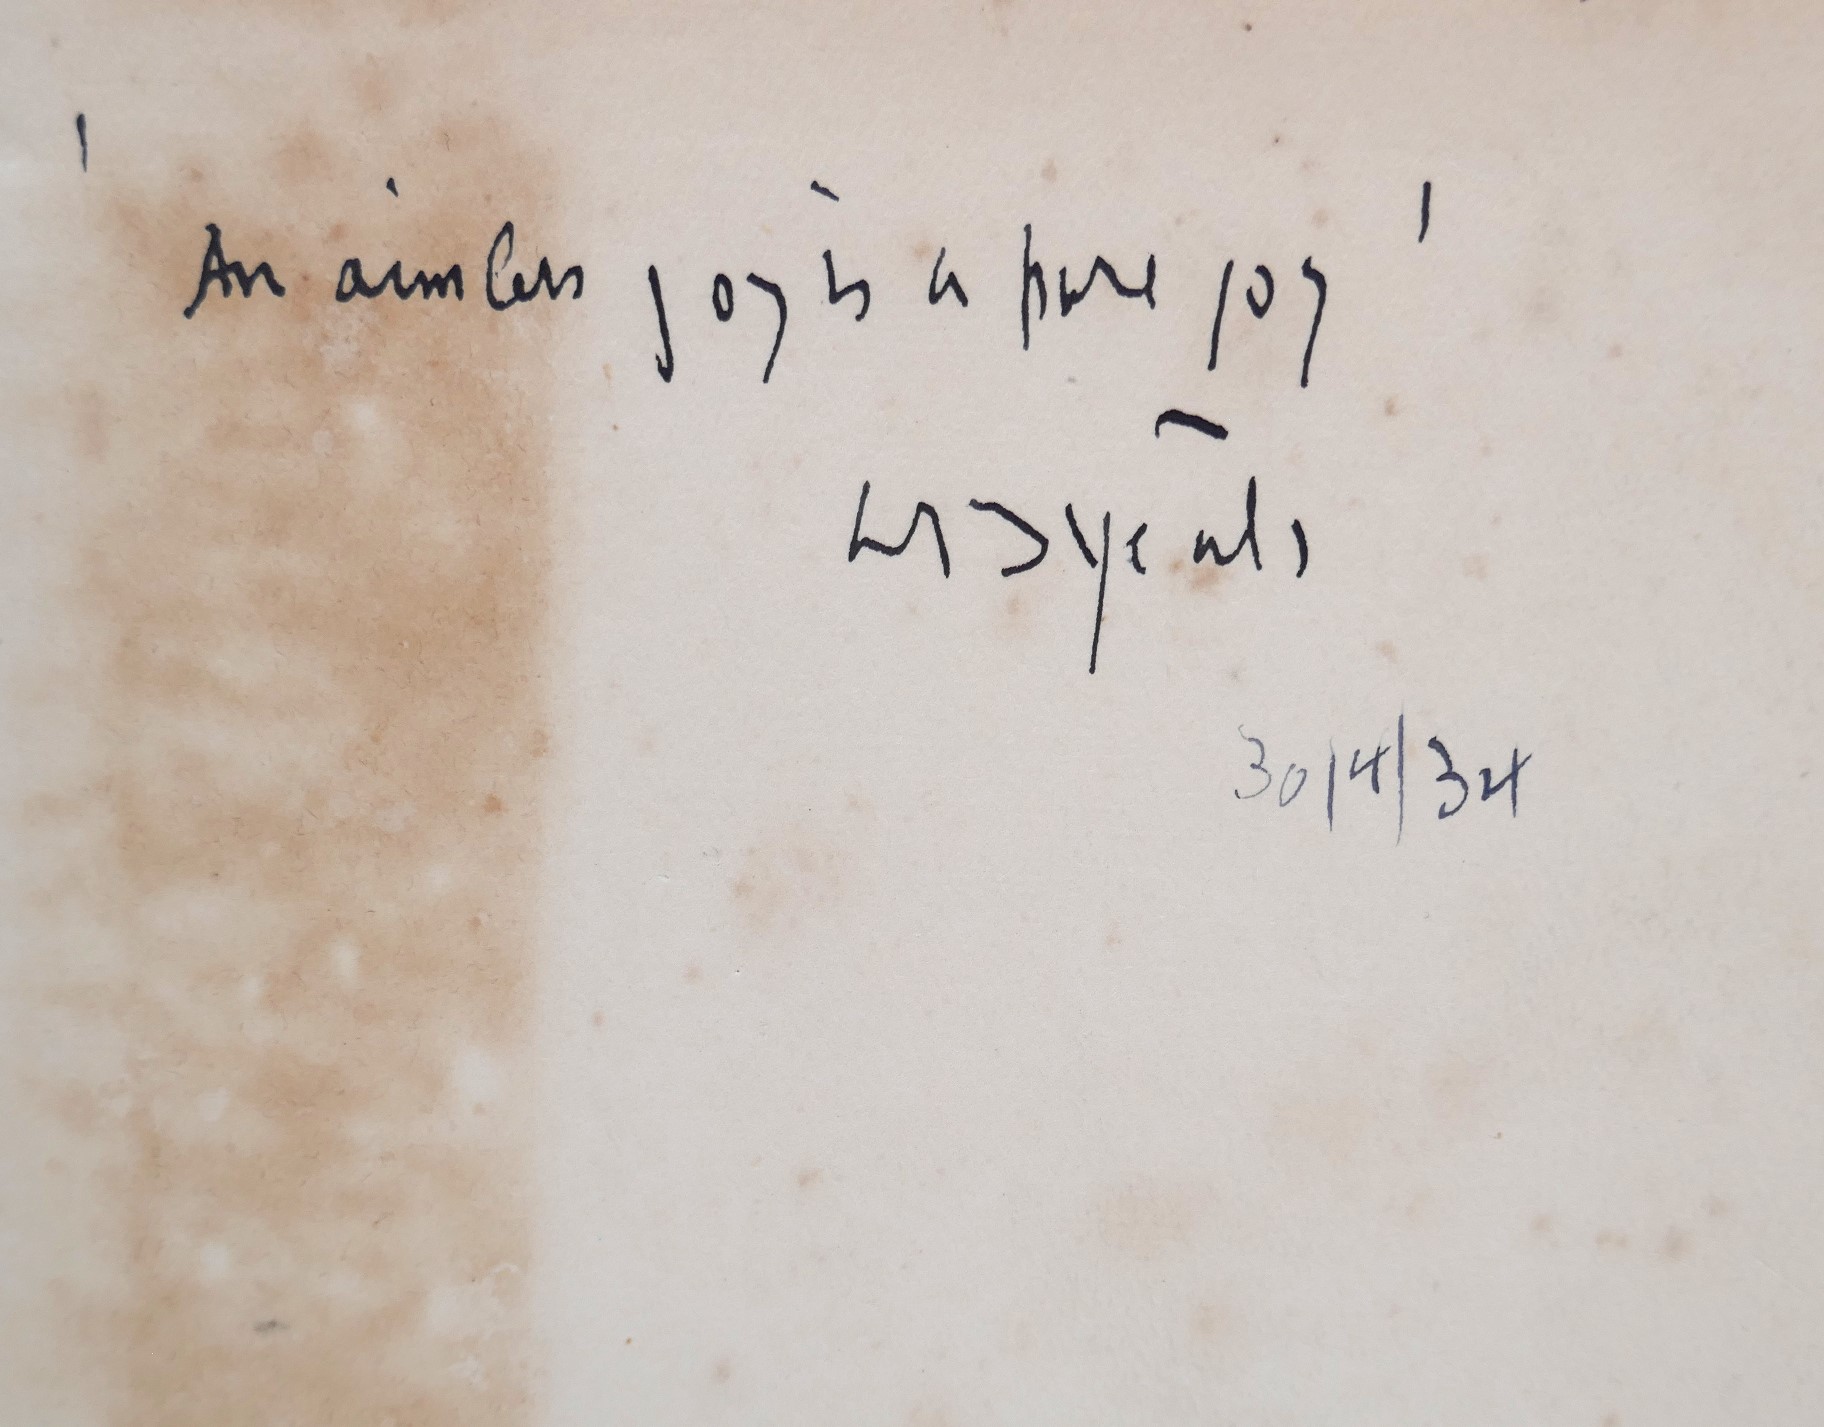 'An aimless joy is a pure joy'
WB Yeats
30/4/34